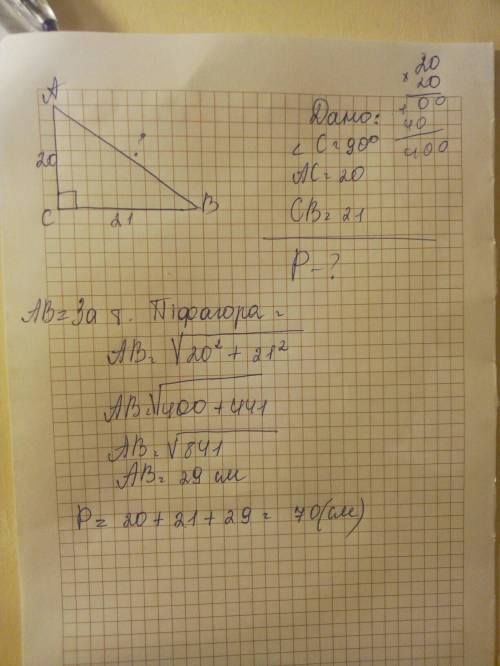 A
20
?
C
21
B
20
× 20
1 00
40
400
Дано:
∠ C = 90°
AC = 20
CB = 21
P - ?
AB = За т. Піфагора =
AB = √20² + 21²
AB = √400 + 441
AB = √841
AB = 29 см
P = 20 + 21 + 29 = 70(см)